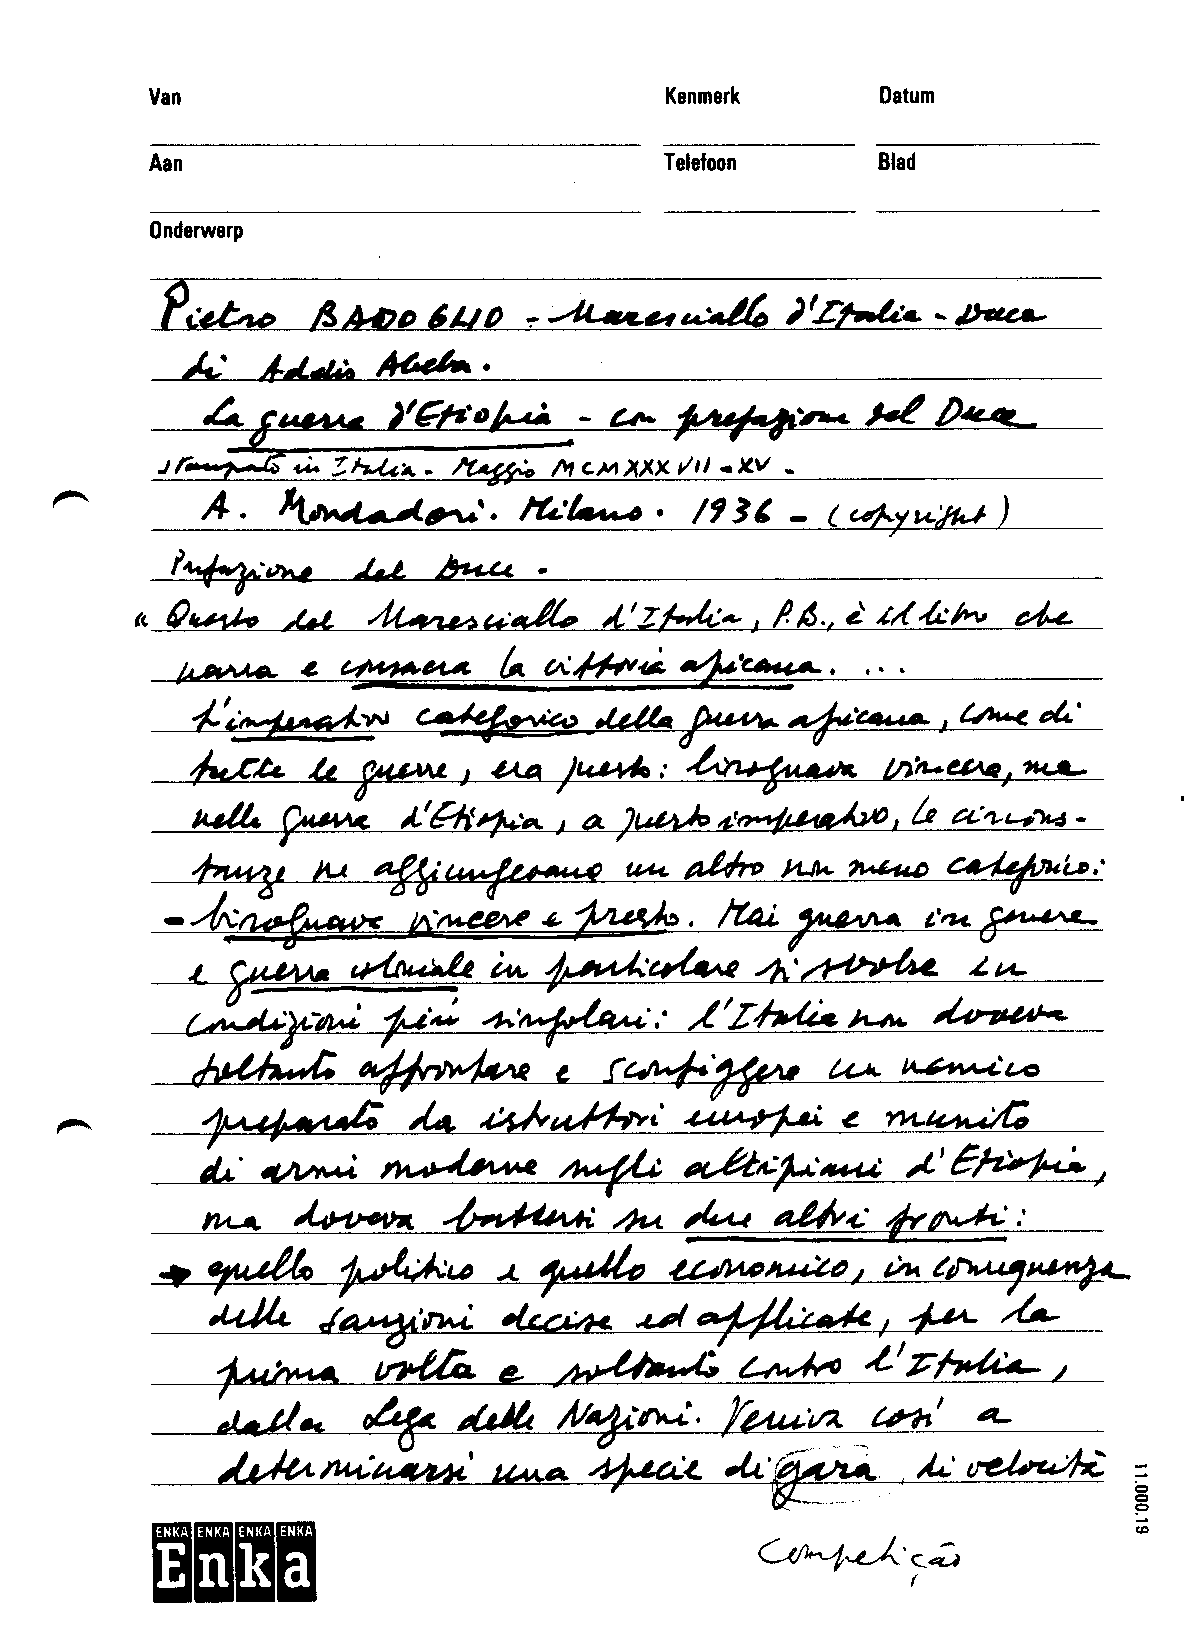 Van
Kenmerk
Datum
Aan
Telefoon
Blad
Onderwerp
Pietro BADOGLIO - Maresciallo d'Italia - Duca
di Addis Abeba.
La guerra d'Etiopia - con prefazione del Duce
stampato in Italia - Maggio MCMXXXVII - XV -
A. Mondadori. Milano. 1936 - (copyright)
Prefazione del Duce -
"Questo del Maresciallo d'Italia, P.B., è il libro che
narra e consacra la vittoria africana. ...
L'imperativo categorico della guerra africana, come di
tutte le guerre, era questo: bisognava vincere, ma
nella guerra d'Etiopia, a questo imperativo, le circons-
tanze ne aggiungevano un altro non meno categorico:
- bisognava vincere e presto. Mai guerra in genere
e guerra coloniale in particolare si svolse in
condizioni più singolari: l'Italia non doveva
soltanto affrontare e sconfiggere un nemico
preparato da istruttori europei e munito
di armi moderne sugli altipiani d'Etiopia,
ma doveva battersi su due altri fronti:
→ quello politico e quello economico, in conseguenza
delle sanzioni decise ed applicate, per la
prima volta e soltanto contro l'Italia,
dalla Lega delle Nazioni. Veniva così a
determinarsi una specie di gara di velocità
competição
11.000.19
ENKA ENKA ENKA ENKA
Enka